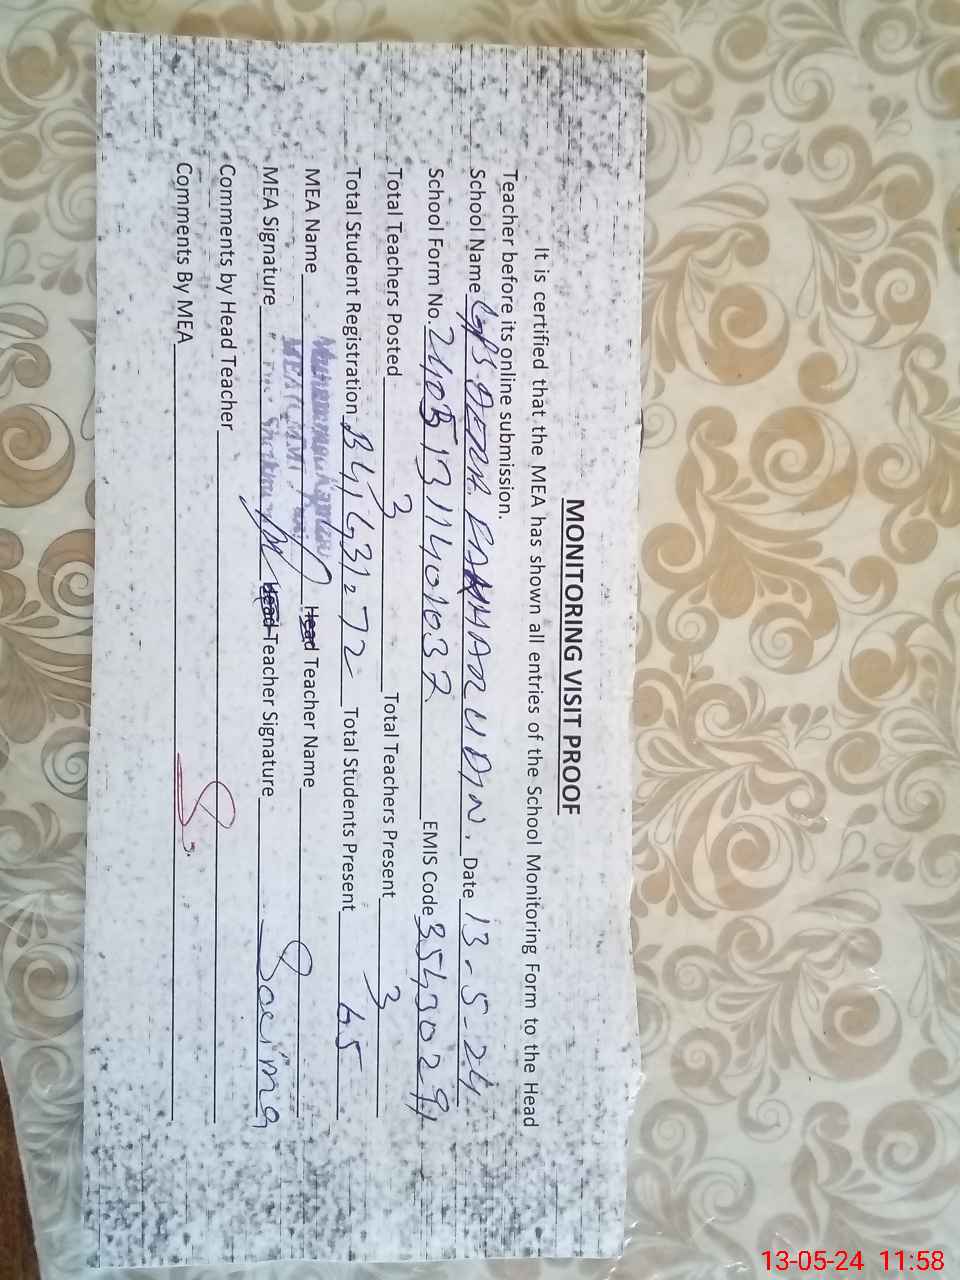 MONITORING VISIT PROOF
It is certified that the MEA has shown all entries of the School Monitoring Form to the Head
Teacher before its online submission.
School Name GPS DERA Date 13-5-24
School Form No. EMIS Code
Total Teachers Posted 3 Total Teachers Present 3
Total Student Registration 72 Total Students Present 65
MEA Name Head Teacher Name
MEA Signature Head Teacher Signature Saima
Comments by Head Teacher
Comments By MEA
13-05-24 11:58